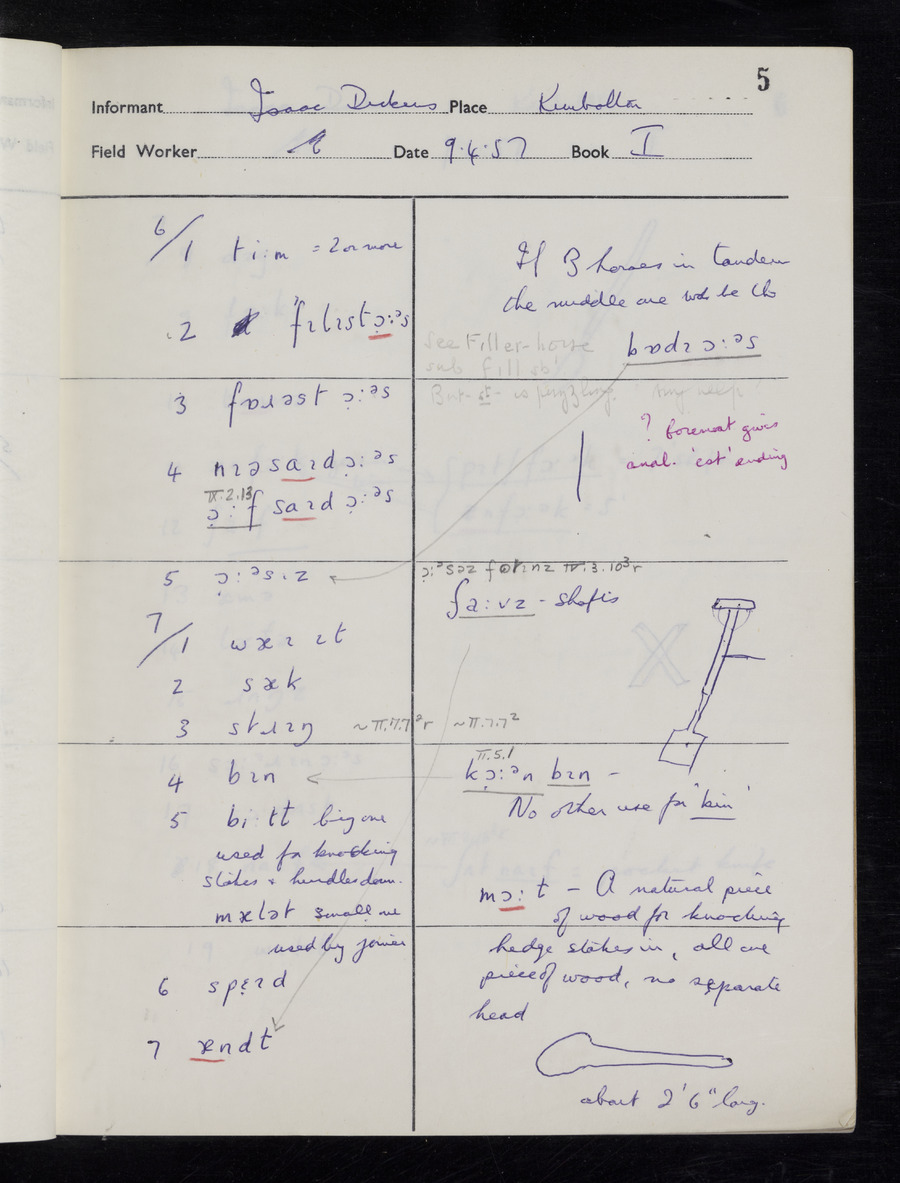 5
Informant Isaac Dickens Place Kimbolton
Field Worker Date 9.4.57 Book I
6/1 ti:m = 2 or more
2 fɪlɪstɔ̣:ᵊs
3 fɒrəst ɔ̣:ᵊs
4 nɪəsaɪd ɔ̣:ᵊs
II.2.13
ɔ̣:f saɪd ɔ̣:ᵊs
5 ɔ̣:ᵊsɪz
7/1 wæɪ ɪt
2 sæk
3 stɹɪŋ ~ II.7.7²r ~ II.7.7²
4 bɪn
5 bi:tɫ big one
used for knocking
stakes & hurdles down.
mælət small one
used by joiner
6 spẹɪd
7 ændɫ
If 3 horses in tandem
the middle one wd be the
see Filler-horse
sub fill sb¹
bɒdɪɔ:ᵊs
But -st- is puzzling
? foremost gives
anal. 'est' ending
ɔ̣:ᵊsəz IV.3.10³r
ʃa:vz - shafts
II.5.1
kɔ̣:ᵊn bɪn -
No other use for 'bin'
mɔ̣:ɫ - A natural piece
of wood for knocking
hedge stakes in, all one
piece of wood, no separate
head
about 2'6" long.